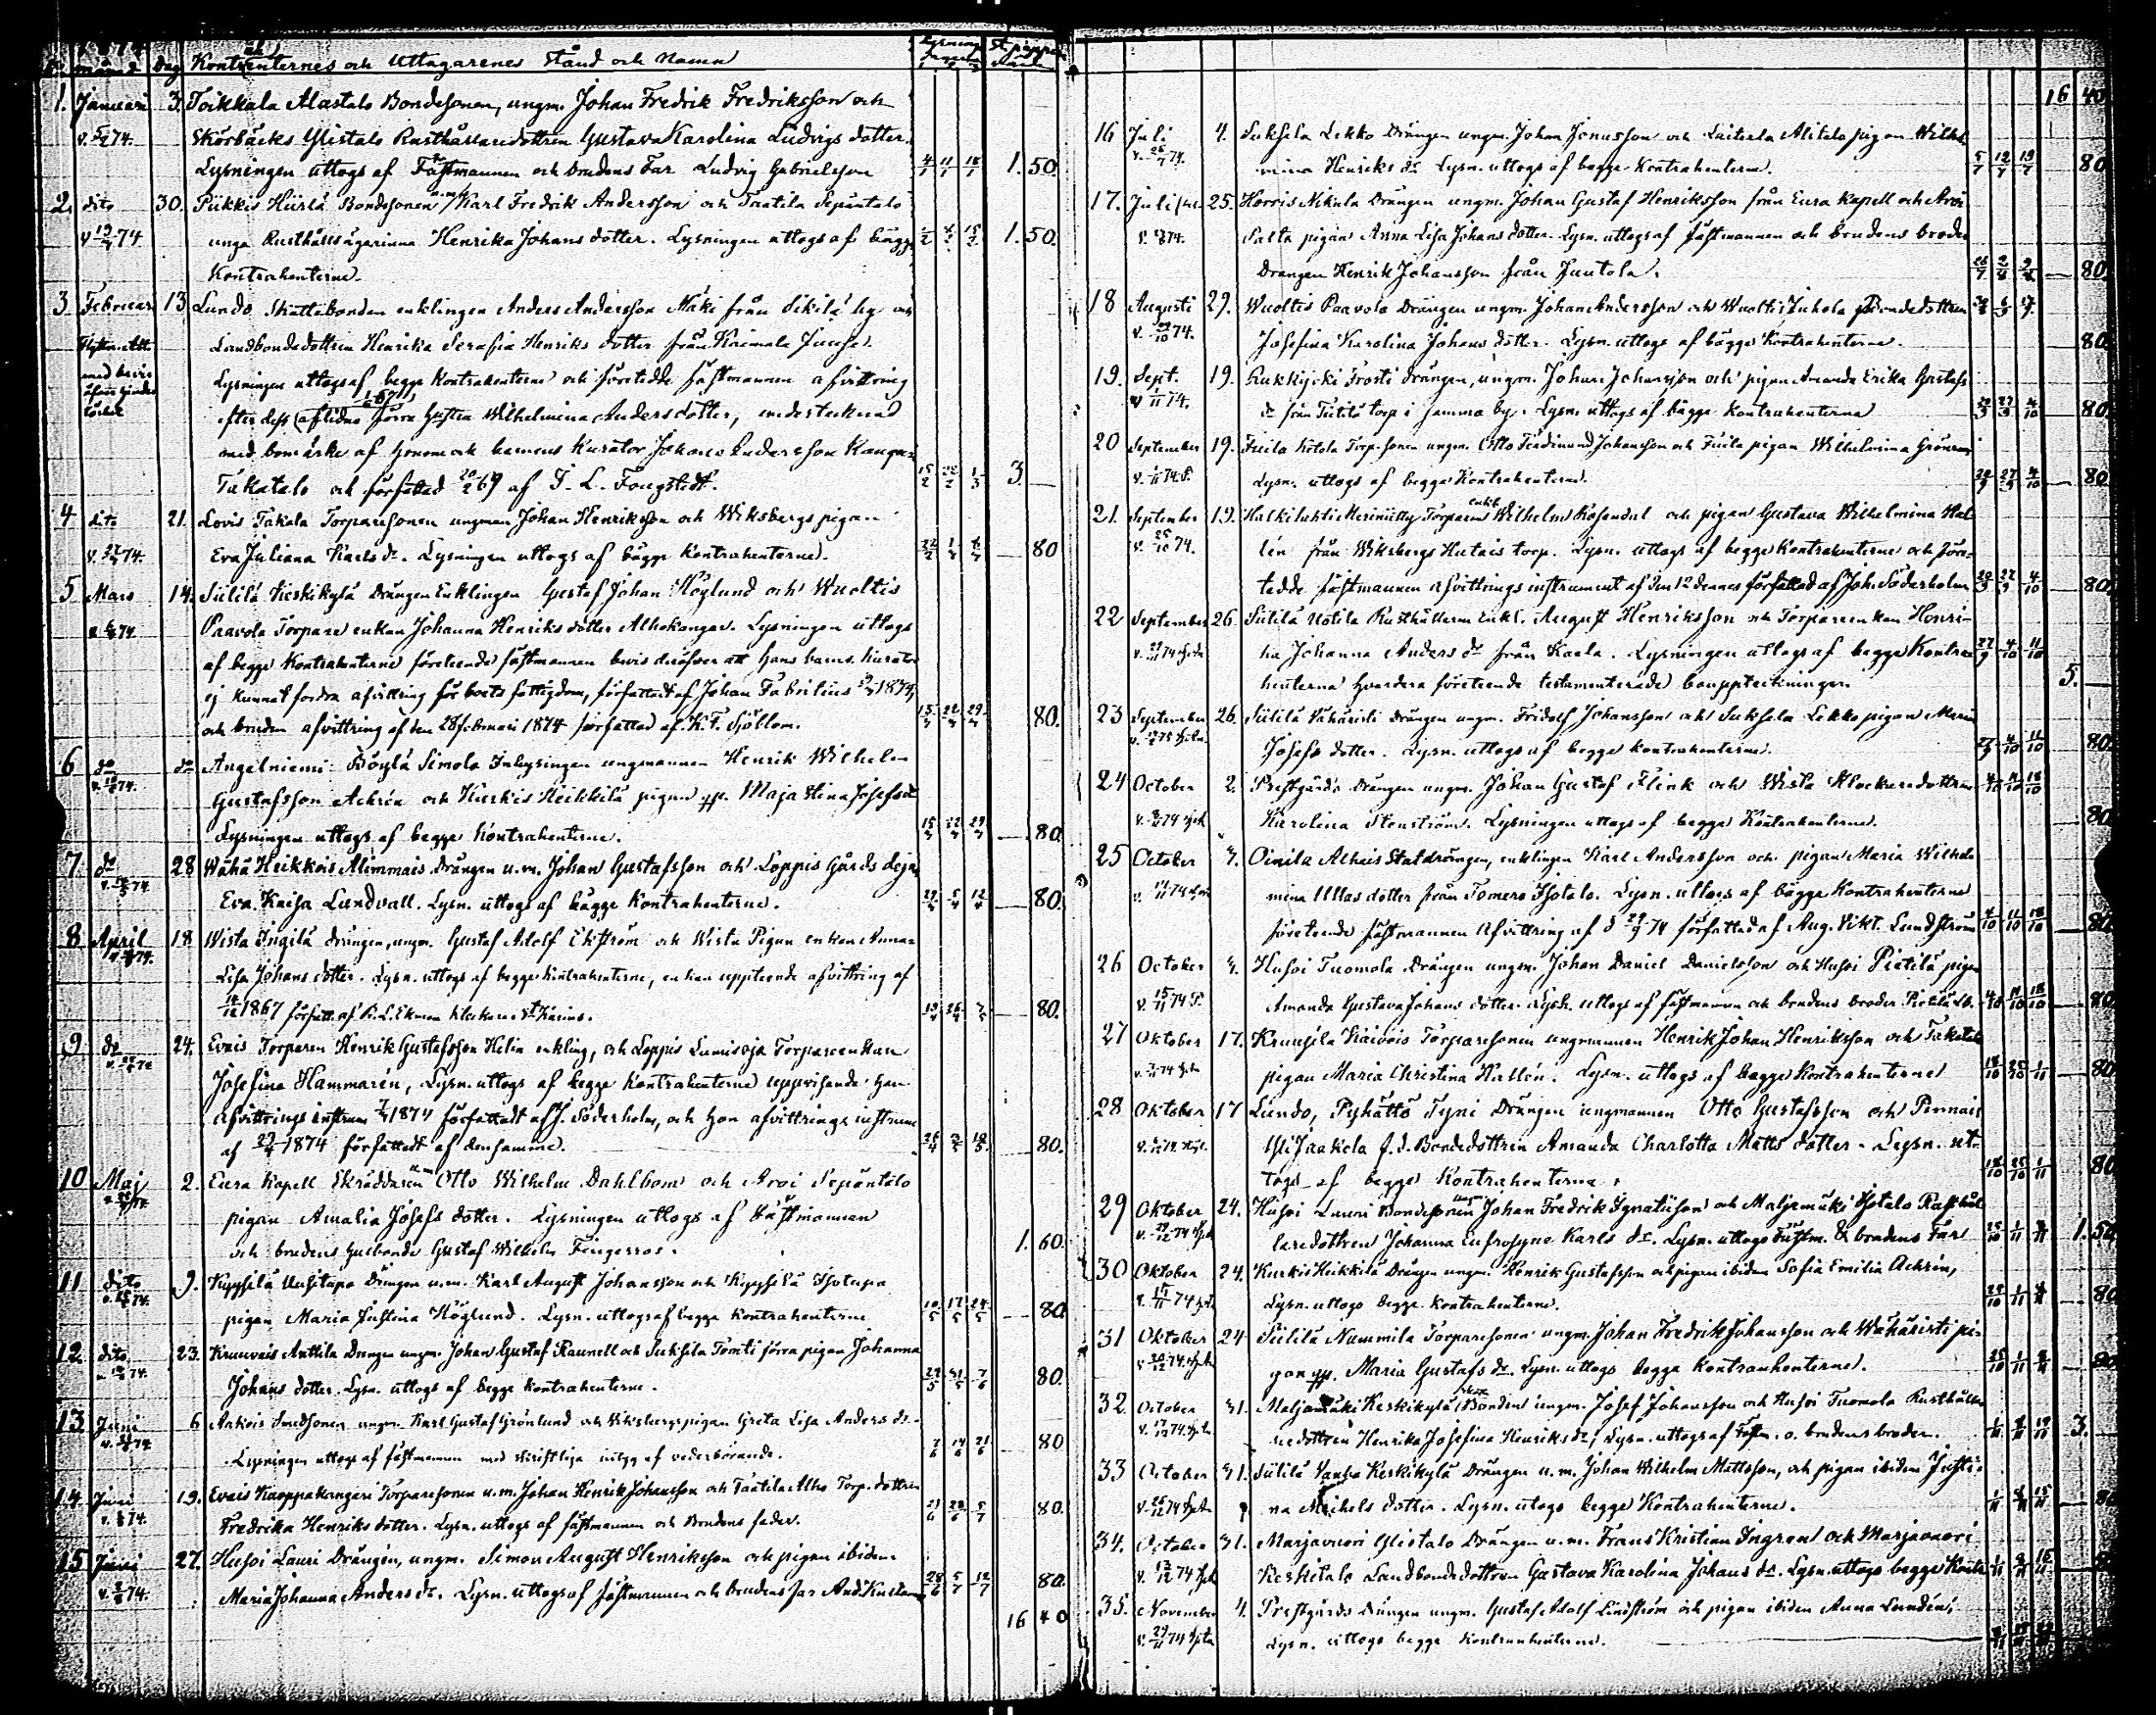 1874
No månad Dag Kontrahenternes och Uttagarenes stånd och Namn Lysnings
1. Januari 3. Toikkala Alastalo Bondesonen, ungm. Johan Fredrik Fredriksson och
v. 74. Skörbäcks Ylistalo Rusthållaredottren Gustava Karolina Ludvigs dotter.
Lysningen uttogs af Fästmannen och brudens Far Ludvig Gabrielsson 4/1 11/1 18/1 1. 50.
2. dito 30. Piikkis Hiirlä Bondesonen Karl Fredrik Andersson och Taatila Sepäntalo
v 74 unga Rusthållsägarinna Henrika Johans dotter. Lysningen uttogs af bägge 1. 50.
Kontrahenterne.
3 Februari 13 Lundo Skattebonden enklingen Anders Andersson Mäki från Sikilä by och
Landbondedottren Henrika Serafia Henriks dotter från Kaimala
med bevis Lysningen uttogs af begge Kontrahenterne och företedde fästmannen afvittring
efter dess aflidne förra Hustru Wilhelmina Anders dotter, undertecknad
med bomärke af honom och barnens Kurator Johan Andersson
Takatalo och författad 20/2 69 af 15/2 22/2 1/3 3. —
4 dito 21. Lovis Takala Torparesonen ungman Johan Henriksson och Wiksbergs pigan
v. 74. Eva Juliana Karls dr. Lysningen uttogs af bägge Kontrahenterne. 22/2 1/3 — 80
5 Mars 14. Sillilä Keskikylä Drängen Enklingen Gustaf Johan Höglund och Wuoltis
v. 74 Paavola Torpare enkan Johanna Henriks dotter Alhokangas. Lysningen uttogs
af begge Kontrahenterne företeende fästmannen bevis deröfver att hans barns Kurator
ej kunnat fordra afvittring för boets fattigdom, författadt af Johan Fabritius 1874,
och bruden afvittring af den 28 februari 1874 författad af K. F. Sjöblom. 15/3 22/3 29/3 80.
6 do do Angelniemi Böylä Simola Inhysingen ungmannen Henrik Wilhelm
v. 74. Gustafsson Achrén och Kurkis Heikkilä pigan Maja Stina Josefs dr
Lysningen uttogs af begge Kontrahenterne. 15/3 22/3 29/3 — 80.
7 do 28 Wähä Heikkois Alimmais Drängen u.m. Johan Gustafsson och Loppis Gårds deja
v. 74 Eva Kaisa Lundvall. Lysn. uttogs af bägge Kontrahenterne. 29/3 5/4 12/4 — 80.
8 April 18 Wista Ingilä drängen, ungm. Gustaf Adolf Ekström och Wista Pigan enkan Anna
74. Lisa Johans dotter. Lysn. uttogs af begge Kontrahenterne, enkan uppteende afvittring af
1867 författ. af K. L. Ekman Klockare i St Karins. 19/4 26/4 3/5 — 80.
9 do 24. Evais Torparen Henrik Gustafsson Helin enkling, och Loppis Lumisoja Torpareenkan
74 Josefina Hammarén, Lysn. uttogs af begge Kontrahenterne uppvisande han
afvittrings instrum 1874 författadt af J. Söderholm, och hon afvittrings instrum
af 1874 författadt af densamme. 26/4 3/5 10/5 80.
10 Maj 2. Eura Kapell Skräddaren Otto Wilhelm Dahlbom och Arvi Sepäntalo
pigan Amalia Josefs dotter. Lysningen uttogs af Fästmannen
och brudens husbonde Gustaf Wilhelm Fingerroos. 1. 60.
11 dito 9. Kyysilä Uusitupa Drängen u.m. Karl August Johansson och Kyysilä Isotupa
74. pigan Maria Justina Höglund. Lysn. uttogs af begge Kontrahenterne 10/5 17/5 24/5 — 80
12 dito 23. Kruuvais Anttila Drengen ungm. Johan Gustaf Raunell och Suksela Tomti förra pigan Johanna
74. Johans dotter. Lysn. uttogs af begge kontrahenterne. 24/5 31/5 7/6 80.
13 Juni 6 Aakois Smedsonen ungm. Karl Gustaf Grönlund och Viksbergs pigan Greta Lisa Anders dr.
v. 74 Lysningen uttogs af fästmannen med skriftliga intyg af vederbörande. 7/6 14/6 21/6 80
14. Juni 19. Evais Kaoppakangari Torparesonen u.m. Johan Henrik Johansson och Taatila Alho Torp. dottren
v. 74. Fredrika Henriks dotter. Lysn. uttogs af fästmannen och Brudens fader. 21/6 28/6 5/7 80.
15 Juni 27. Husoi Lauri Drängen, ungm. Simon August Henriksson och pigan ibidem
v. 74. Maria Johanna Anders dr. Lysn. uttogs af fästmannen och brudens far And. 28/6 5/7 12/7 80.
16 40
16 40
16 Juli 4. Suksela Lekko Drängen ungm. Johan Jonasson och Laitsela Alitalo pigan Wilhel
v. 74. mina Henriks dr Lysn. uttogs af begge Kontrahenterne. 5/7 12/7 19/7 80
17. Juli 25. Horris Nikula Drängen ungm. Johan Gustaf Henriksson från Eura Kapell och Arvi
74. Salta pigan Anna Lisa Johans dotter. Lysn. uttogs af fästmannen och brudens broder
Drängen Henrik Johansson från Juntola. 26/7 2/8 9/8 — 80.
18 Augusti 29. Wuoltis Paavola Drängen ungm. Johan Andersson och Wuoltis Juhola Bondedottren
v. 74. Josefina Karolina Johans dotter. Lysn. uttogs af bägge Kontrahenterne. 80.
19. Sept. 19. Rukkijoki Prosti Drängen, ungm. Johan Johansson och pigan Amanda Erika Gustafs
v 74. dr från Tütilä torp i samma by. Lysn. uttogs af bägge Kontrahenterne 20/9 27/9 4/10 80.
20 September 19. Juila Kotola Torp. sonen ungm. Otto Ferdinand Johansson och Juila pigan Wilhelmina Grönroos
Lysn. uttogs af begge Kontrahenterne. 20/9 27/9 4/10 80.
21. September 19. Halkilahti Meriniitty Torparen enkl. Wilhelm Rosendal och pigan Gustava Wilhelmina Hal
v. 74. lén från Wiksbergs Hutais torp. Lysn. uttogs af begge Kontrahenterne och före
tedde fästmannen afvittrings instrument af den 12 dennes författad af Joh. Söderholm 20/9 27/9 4/10 80.
22 September 26. Sillilä Uotila Rusthållaren Enkl. August Henriksson och Torpareenkan Henri-
v. 74 ka Johanna Anders dr från Kaela. Lysningen uttogs af begge Kontra 27/9 4/10 11/10
henterna hvardera företeende testamenterade bouppteckningar. 5. —
23 September 26. Sillilä Wähäristi Drängen ungm. Fridolf Johansson och Suksela Lekko pigan Maria
v. 75 Josefs dotter. Lysn. uttogs af begge kontrahenterne. 27/9 4/10 11/10 80.
24 October 2. Prestgårds Drängen ungm. Johan Gustaf Flink och Wista Klockaredottren 4/10 11/10 18/10
v. 74 Karolina Stenström. Lysningen uttogs af begge Kontrahenterne. 80.
25 October 3. Oinila Alhais Statdrängen, enklingen Karl Andersson och pigan Maria Wilhel
v. 74 mina Ullas dotter från Tomero Isotalo. Lysn. uttogs af bägge Kontrahenterne
företeende fästmannen afvittring af d 74 författad af Aug. Vikt. Lundström 4/10 11/10 18/10 80.
26 October 3. Husoi Tuomola Drängen ungm. Johan Daniel Danielsson och Husoi Pietilä pigan
v. 15/11 74 Amanda Gustava Johans dotter. Lysn. uttogs af fästmannen och brudens broder 4/10 11/10 18/10 80.
27 Oktober 17. Kruusila Kaivois Torparesonen ungmannen Henrik Johan Henriksson och Takatalo
v. 74 pigan Maria Christina Hallén. Lysn. uttogs af begge Kontrahenterne 18/10 25/10 1/11 — 80
28 Oktober 17 Lundo, Pyhättö Tyni Drängen ungmannen Otto Gustafsson och Pernais
v. 74 Yli Jaakola f.d. Bondedottren Amanda Charlotta Matts dotter. Lysn. ut-
togs af begge Kontrahenterne. 18/10 25/10 1/11 80.
29 Oktober 24. Husoi Lauri Bondesonen ungm. Johan Fredrik Ignatiison och Maljamäki Isotalo Rusthål
v. 29/12 74 laredottren Johanna Eufrosyne Karls dr. Lysn. uttogs Fästm. & brudens Far 25/10 1/11 8/11 1. 50.
30 Oktober 24. Kurkis Heikkilä Drängen ungm. Henrik Gustafsson och pigan ibidem Sofia Emilia Achrén,
v. 74 Lysn. uttogs begge kontrahenterne. 25/10 1/11 8/11 80
31 Oktober 24 Sillilä Nummila Torparesonen ungm. Johan Fredrik Johansson och Wähäristi pi-
v. 74 gan Maria Gustafs dr. Lysn. uttogs begge Kontrahenterne. 25/10 1/11 8/11 80
32. October 31. Maljamäki Keskikylä Bonden ungm. Josef Johansson och Husoi Tuomola Rusthålla
v. 74 redottren Henrika Josefina Henriks dr, Lysn. uttogs af Fästm. o. brudens broder. 3.
33 October 31. Sillilä Keskikylä Drängen u.m. Johan Wilhelm Mattsson, och pigan ibidem Justi-
v. 74 na Mikels dotter. Lysn. uttogs begge Kontrahenterne. 1/11 8/11 15/11 80
34. October 31. Marjavuori Ylistalo Drängen u.m. Frans Kristian Ingren och Marjavuori
v. 74 Keskitalo Landbondedottren Gustava Karolina Johans dr. Lysn. uttogs begge Kontr.
35. November 4. Prestgårds Drängen ungm. Gustaf Adolf Lindström och pigan ibidem Anna Lundén,
v. 74 Lysn. uttogs begge Kontrahenterne.